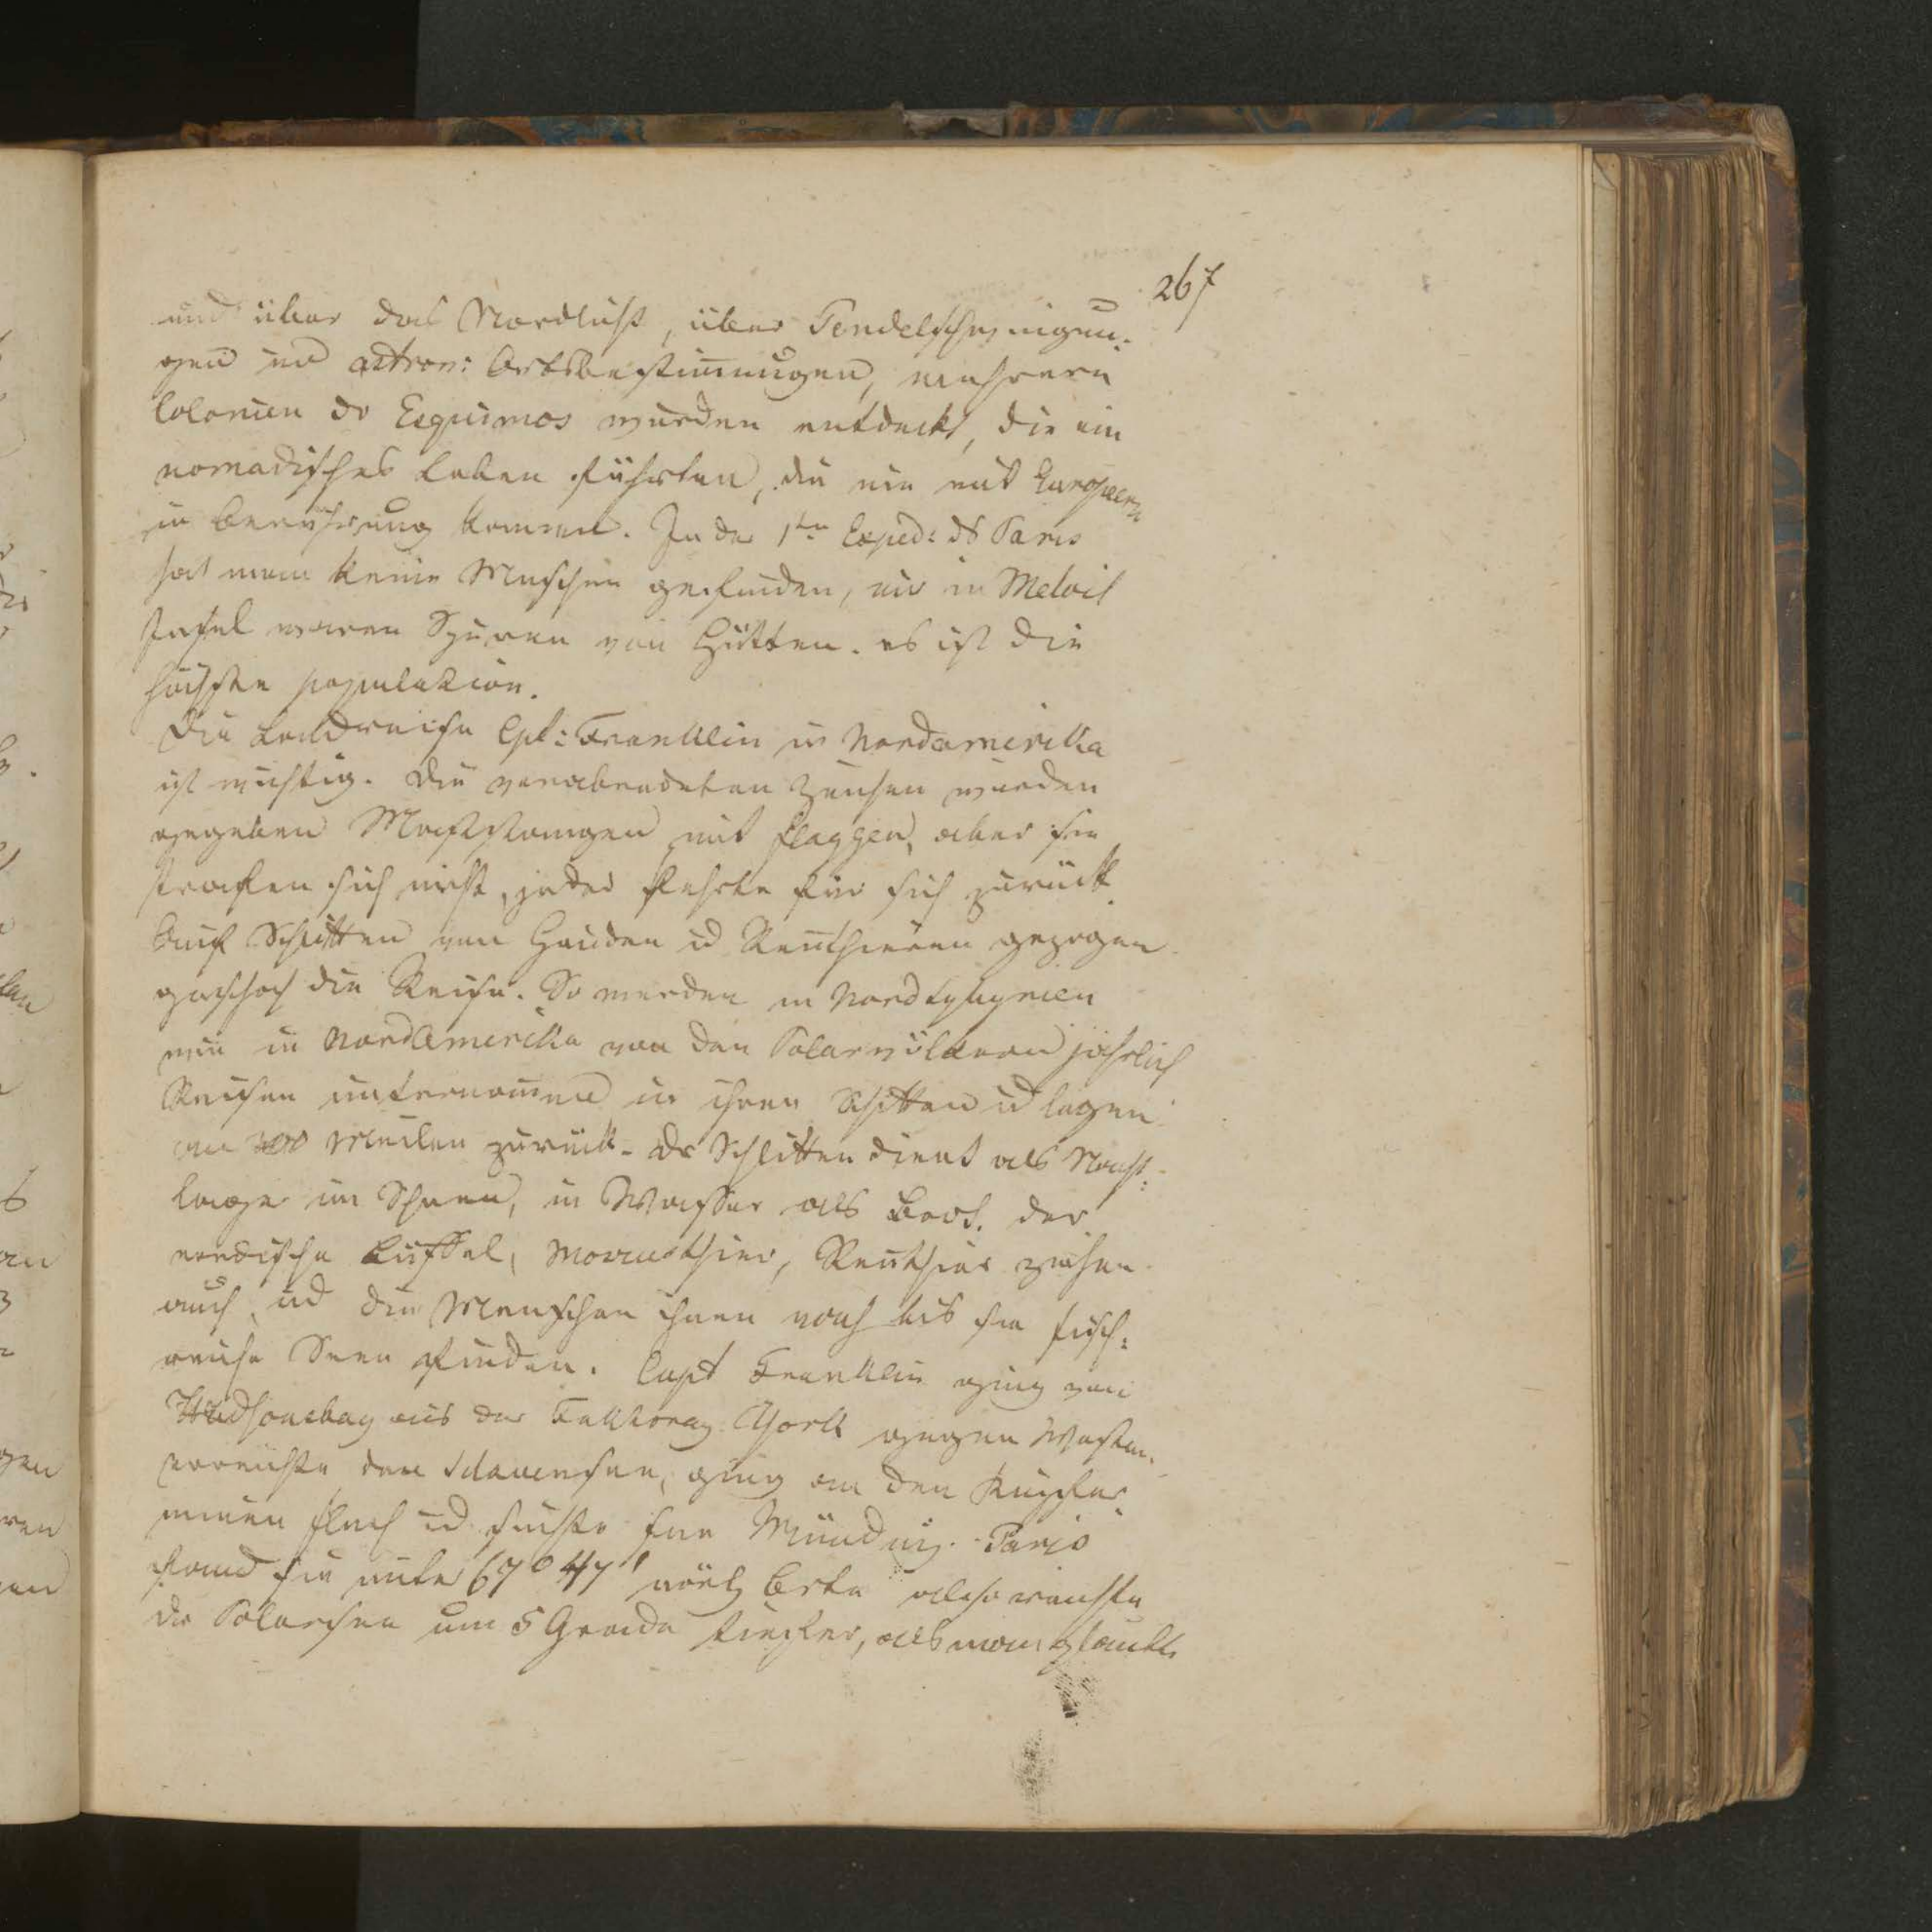 267
und über das Nordlicht, über Pendelschwingun-
gen und astron: Ortsbestimmungen, mehrere
Colonien der Esquimos wurden entdeckt, die ein
nomadisches Leben führten, die nie mit Europäern
in Berührung kommen. In der 1ten Exped: des Paris
hat man keine Menschen gefunden, nur in Melvil
Insel waren Spuren von Hütten. es ist die
höchste population.
Die Landreise Cpt: Franklin in Nordamerika
ist wichtig. Die verabredeten Zeichen wurden
gegeben Maststangen mit flaggen, aber sie
trafen sich nicht, jeder kehrte für sich zurück.
Auf Schlitten von Hunden und Rennthieren gezogen
geschah die Reise. So werden in
wie in Nordamerika von den Polarvölkern jährlich
Reisen unternommen in ihren Schlitten und legen
an 300 Meilen zurück. Der Schlitten dient als Nacht-
lager im Schnee, im Wasser als Boot. der
nordische Büffel, Moschusthier, Rennthier ziehen
auch, und die Menschen ihnen nach bis sie fisch-
reiche Seen finden. Capt Franklin ging von
Hudsonsbay aus der Faktorey York gegen Westen,
erreichte den Sklavensee, ging an den Kupfer-
minen fluß und suchte seine Mündung. Paris
fand sie unter 67° 47' nörd Breite also reichte
die Polarsee um 5 Grade tiefer, als man glaubte